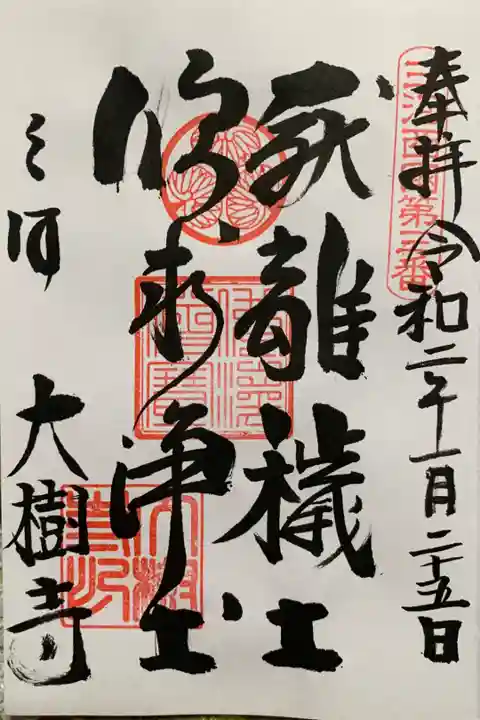 奉拝 令和二年十一月二十五日
三河西国第三番
厭離穢土
欣求浄土
三河 大樹寺